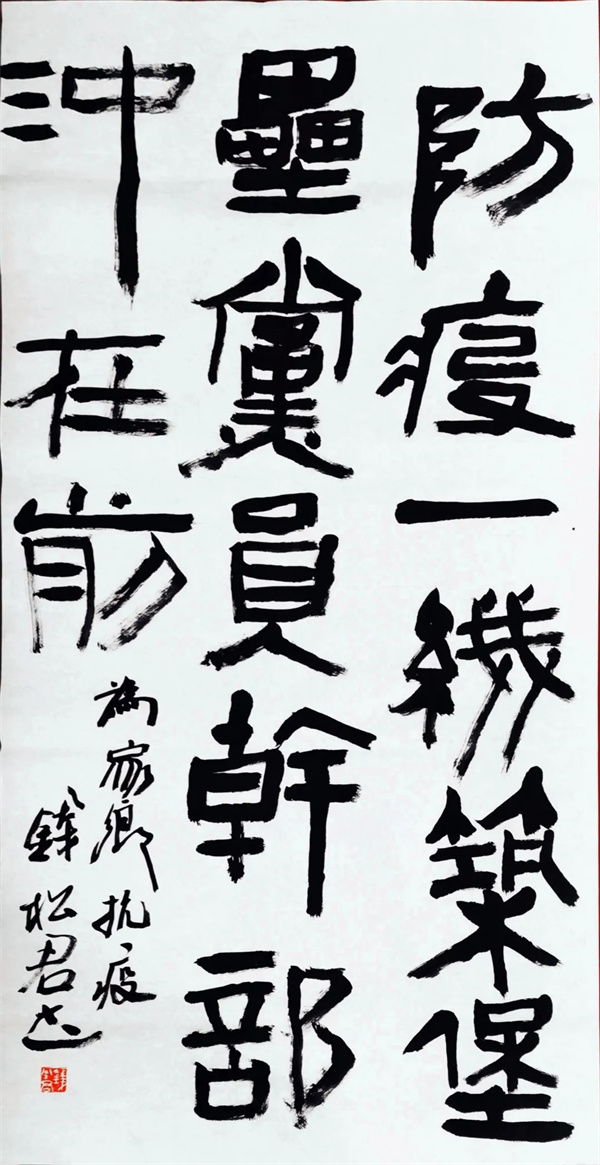 防疫一綫築堡
壘黨員幹部
沖在前
為家鄉抗疫
錢松君书